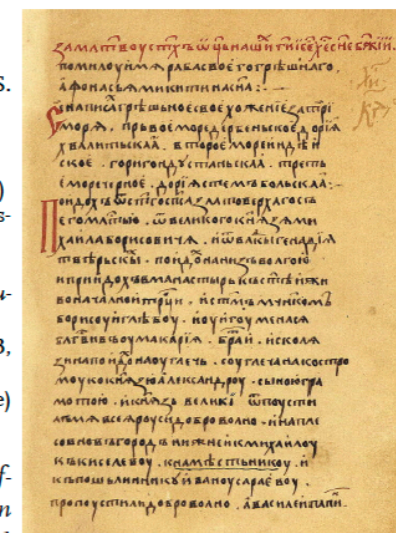 S.
за мл҃твоу ст҃хъ ѿц҃ь нашиⷯ ги҃ іс҃е хе҃ сн҃е бж҃ии.
помилоуи мѧ раба своег҄о грѣшнаго,
аѳонасьѧ микитина сн҃а :
написа грѣшьное свое хоженїе за три
морѧ . прьвое море дербеньское дорїѧ
хвалитьскаа . второе море индѣи
ское . дорѧ гондустаньскаа . третье
море черное . дорїѧ стемъбольскаа :
поидох ѿ ст҃го сп҃са златоверхаго съ
его млⷭтью , ѿ великого кнѧзѧ ми
хаила борисовичѧ . и ѿ влⷣкы генадїѧ
твѣрьскыⷯ . поидоⷯ на низъ волгою
и приидохъ в манастырь къ ст҃ѣи жи
воначалнои трⷪци , и ст҃мъ мч҃нкомъ
борисоу и глѣбоу . и оу игоумена сѧ
блг҃вивъ оу макарїѧ . братьи . и с колѧ
зина поидоⷯ на оуглечь . с оуглеча на костро
моу ко кнѧзю александроу . с ыною гра
мотою . и кнѧзь великїи ѿпоусти
лъ мѧ всеѧ роуси доброволно . и на пле
со в новъгородъ в нижнеи к михаилоу
къ киселевоу . к намѣстьникоу . и
къ пошьлинникоу иваноу сараевоу .
пропоустили доброволно . а василеи папиⷩ .